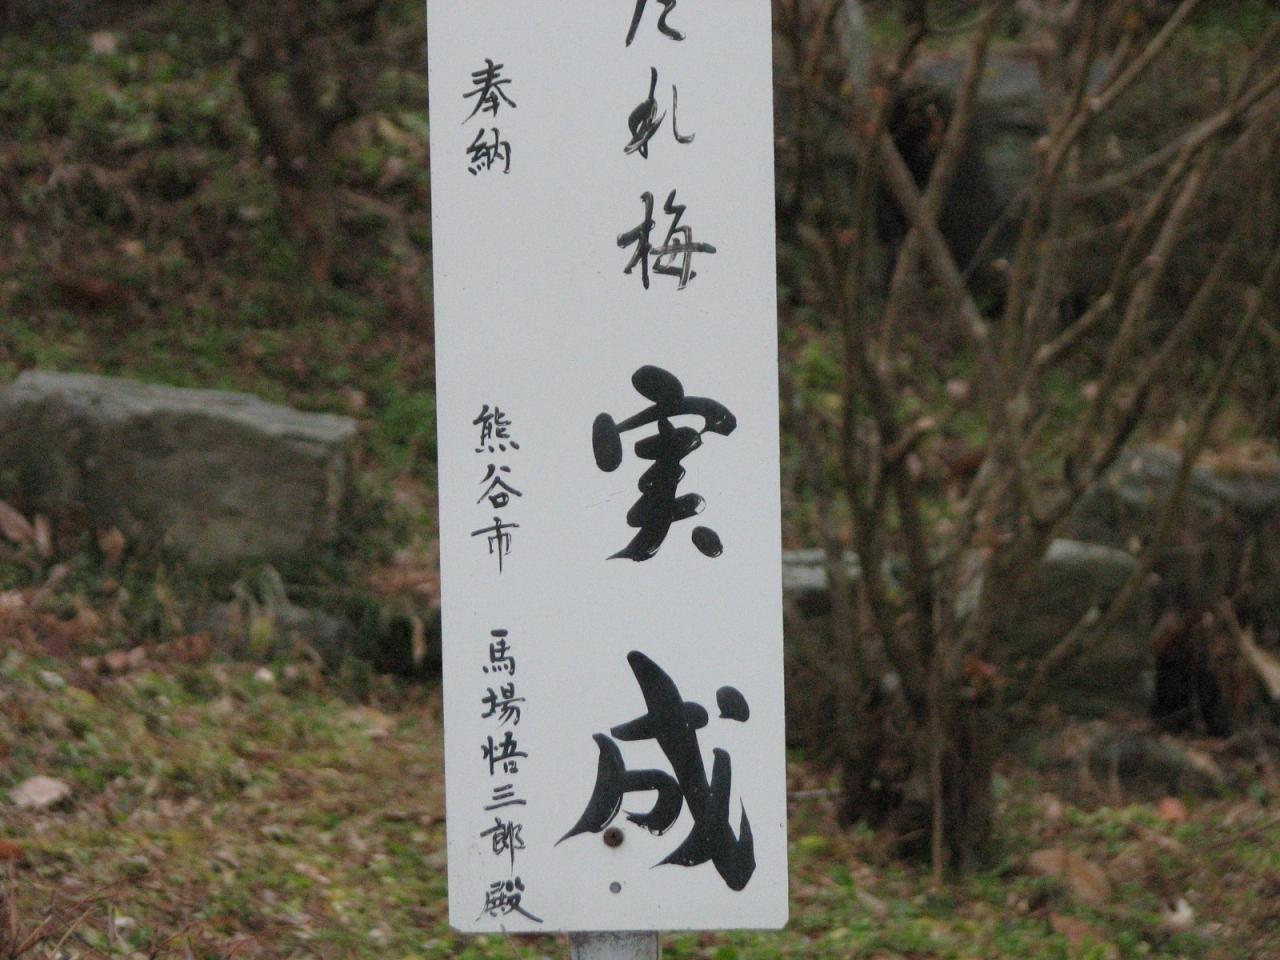 だれ梅 実成
奉納 熊谷市 馬場悟三郎殿